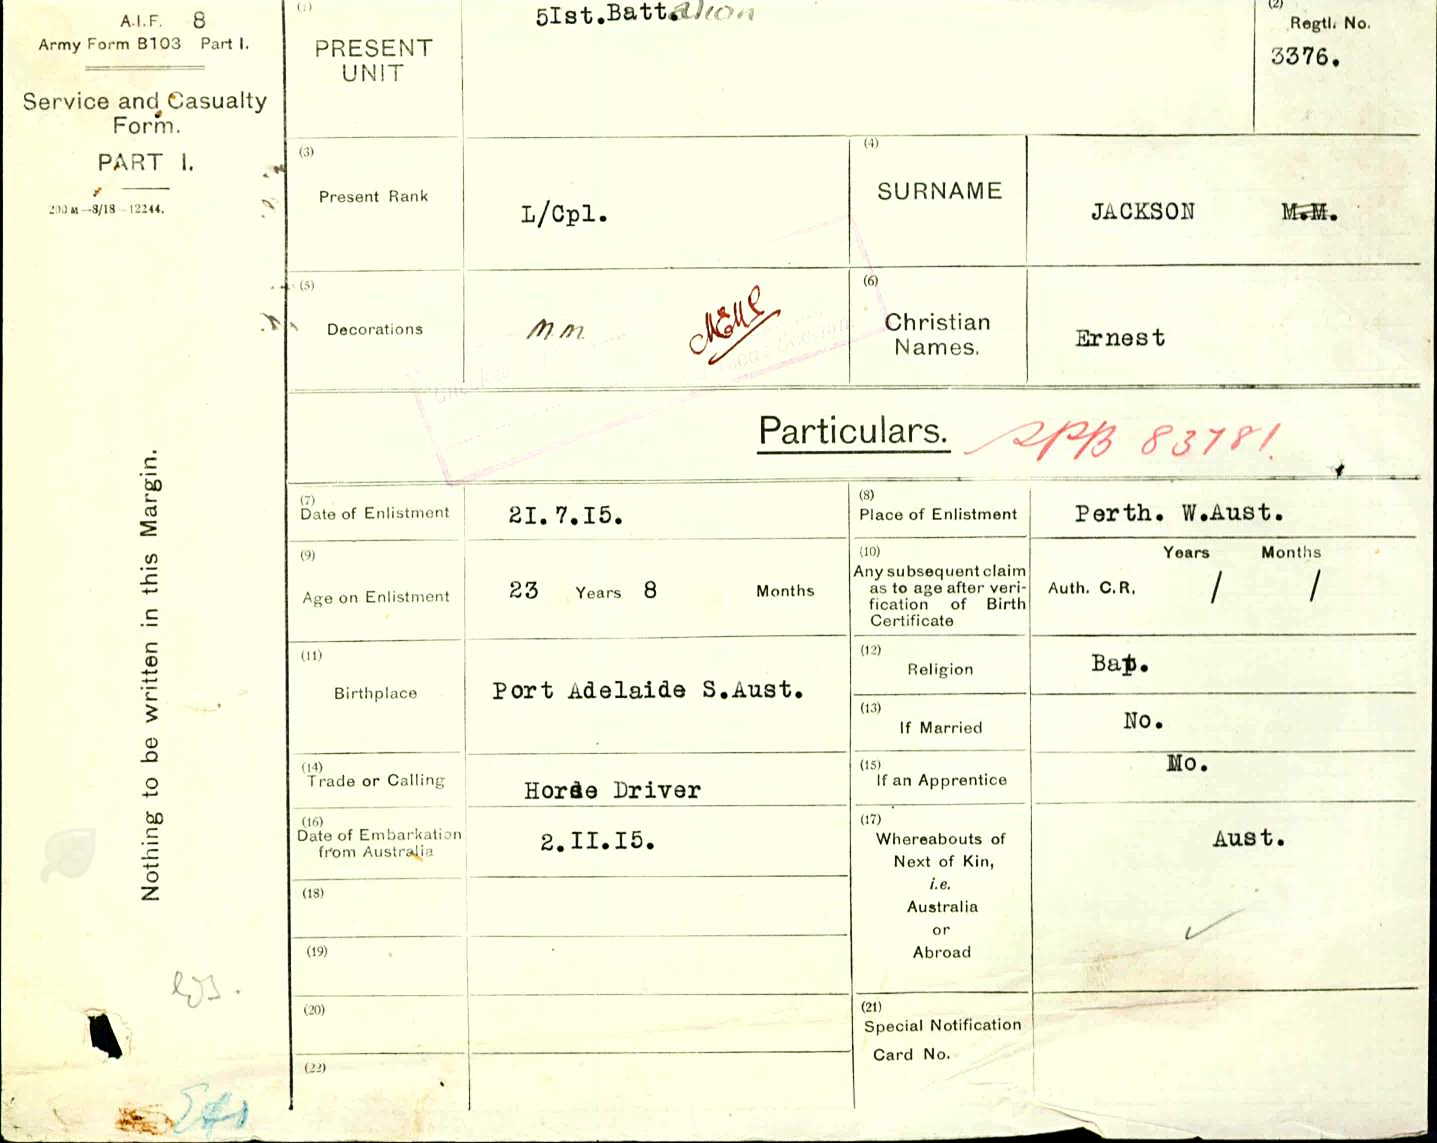 A.I.F. 8
Army Form B103 Part I.
Service and Casualty
Form.
PART I.
200 M—8/18—12244.
Nothing to be written in this Margin.
(1)
PRESENT
UNIT
5Ist.Battalion
(2)
Regtl. No.
3376.
(3)
Present Rank
L/Cpl.
(4)
SURNAME
JACKSON M.M.
(5)
Decorations
M.M.
(6)
Christian
Names.
Ernest
Particulars.
83781.
(7)
Date of Enlistment
2I.7.I5.
(8)
Place of Enlistment
Perth. W.Aust.
(9)
Age on Enlistment
23 Years 8 Months
(10)
Any subsequent claim
as to age after veri-
fication of Birth
Certificate
Years Months
Auth. C.R. / /
(11)
Birthplace
Port Adelaide S.Aust.
(12)
Religion
Bap.
(13)
If Married
No.
(14)
Trade or Calling
Horse Driver
(15)
If an Apprentice
No.
(16)
Date of Embarkation
from Australia
2.II.I5.
(17)
Whereabouts of
Next of Kin,
i.e.
Australia
or
Abroad
Aust.
(18)
(19)
(20)
(21)
Special Notification
Card No.
(22)